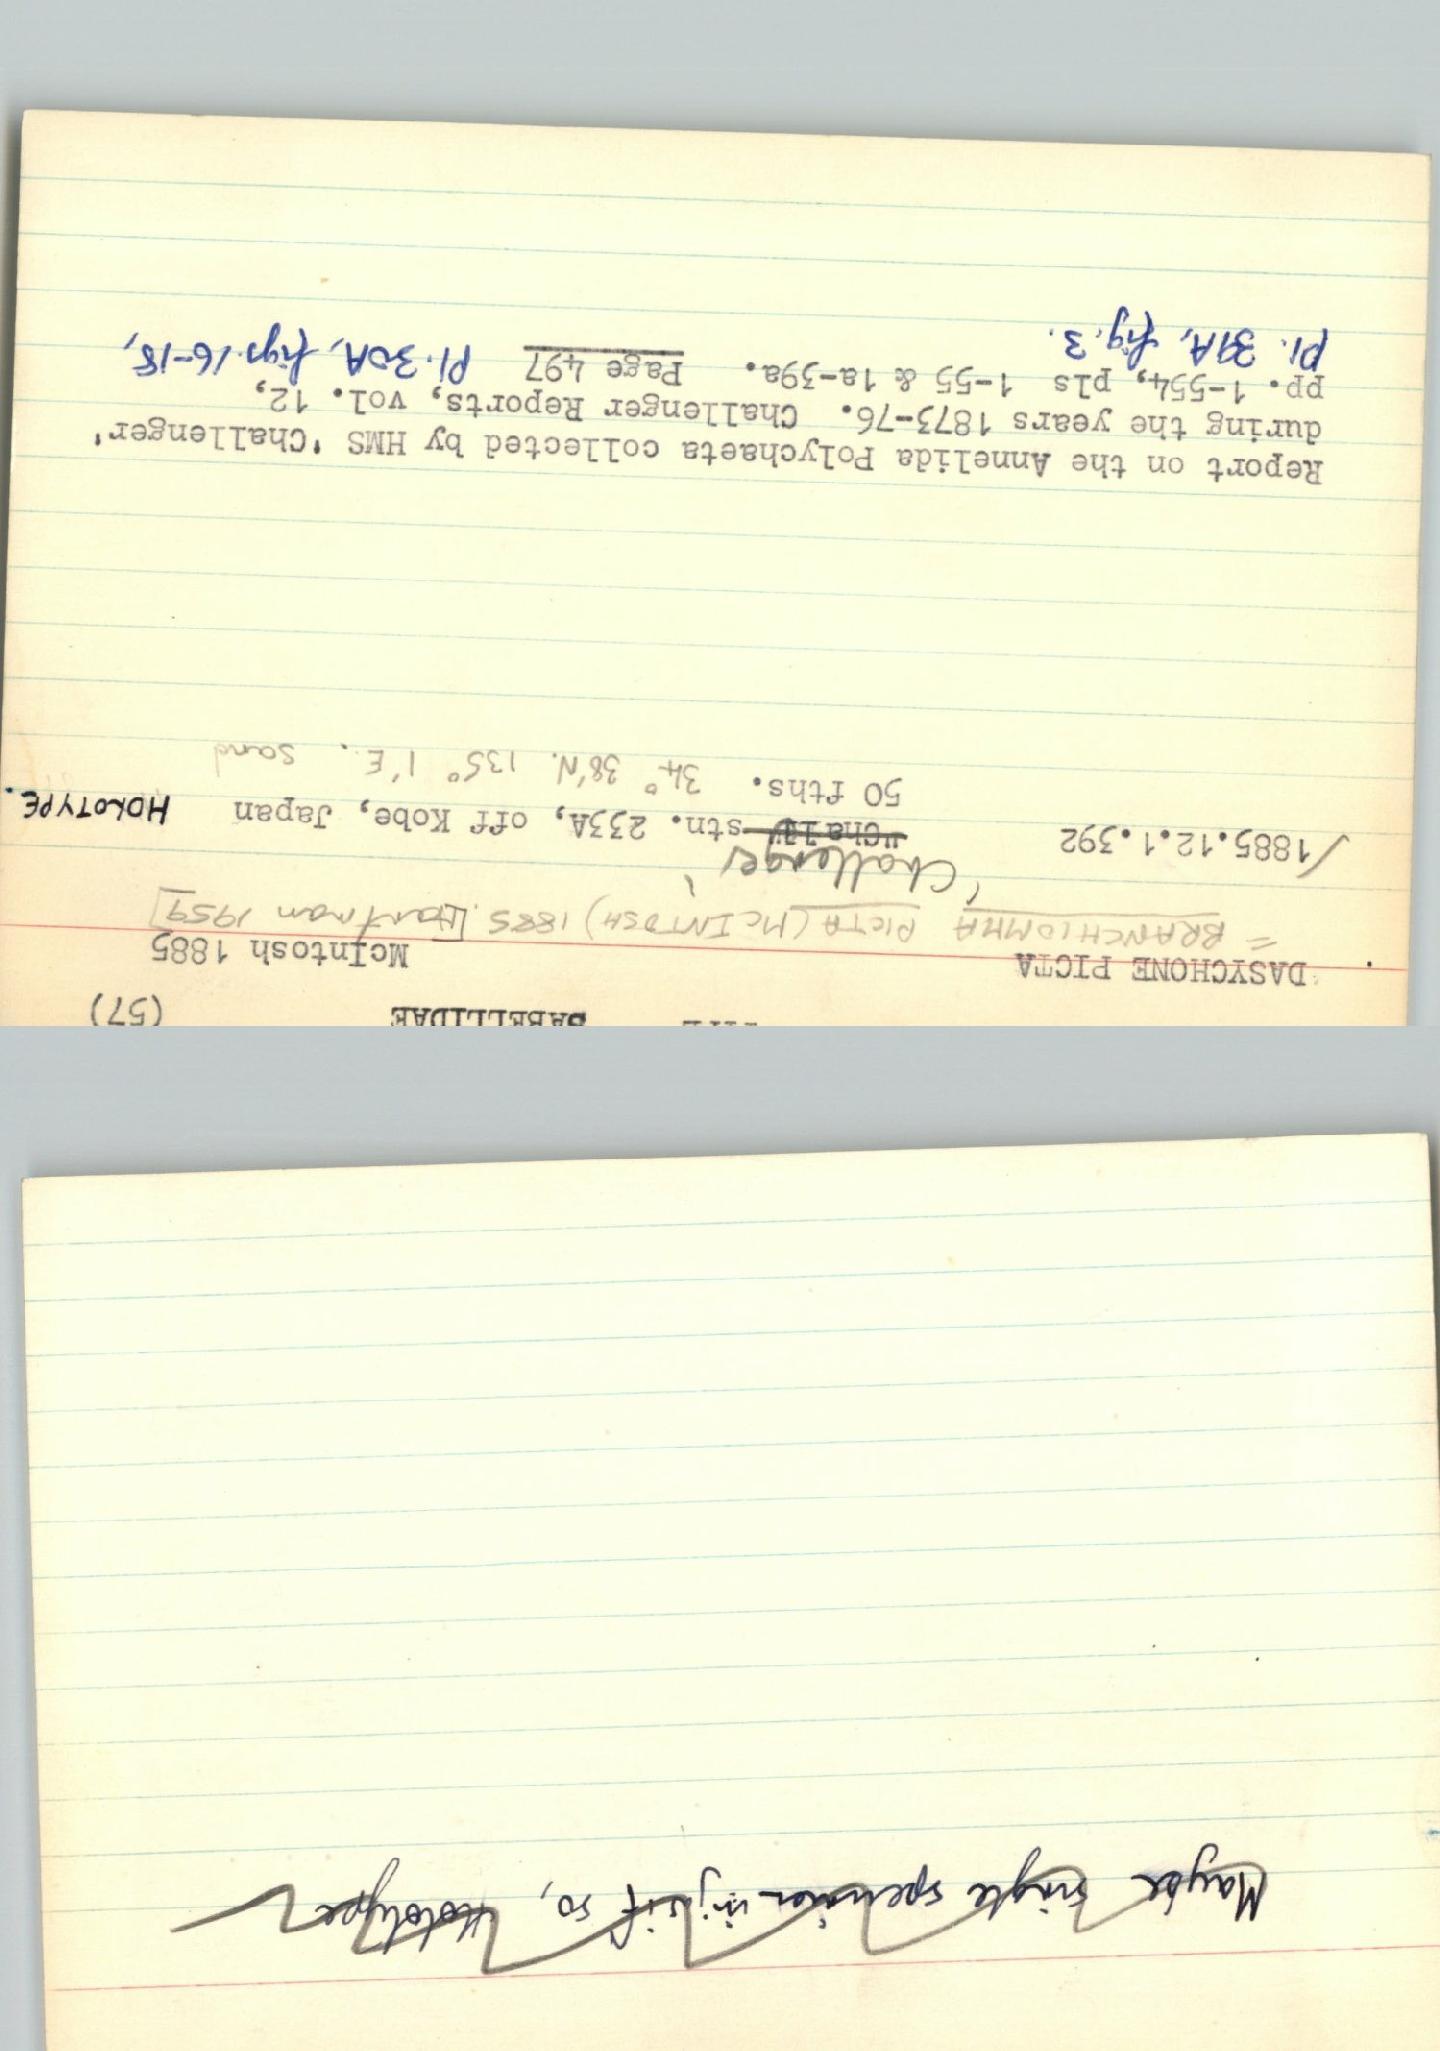 SABELLIDAE (57)
DASYCHONE PICTA McIntosh 1885
= BRANCHIOMMA PICTA (McINTOSH) 1885. [Hartman 1959]
'Challenger'
/1885.12.1.392 "Chall" stn. 233A, off Kobe, Japan HOLOTYPE.
50 fths. 34° 38'N. 135° 1'E. Sand
Report on the Annelida Polychaeta collected by HMS 'Challenger'
during the years 1873-76. Challenger Reports, vol. 12,
pp. 1-554, pls 1-55 & 1a-39a. Page 497 Pl. 30A, figs. 16-18,
Pl. 39A, fig. 3.
Maybe single specimen if so, Holotype